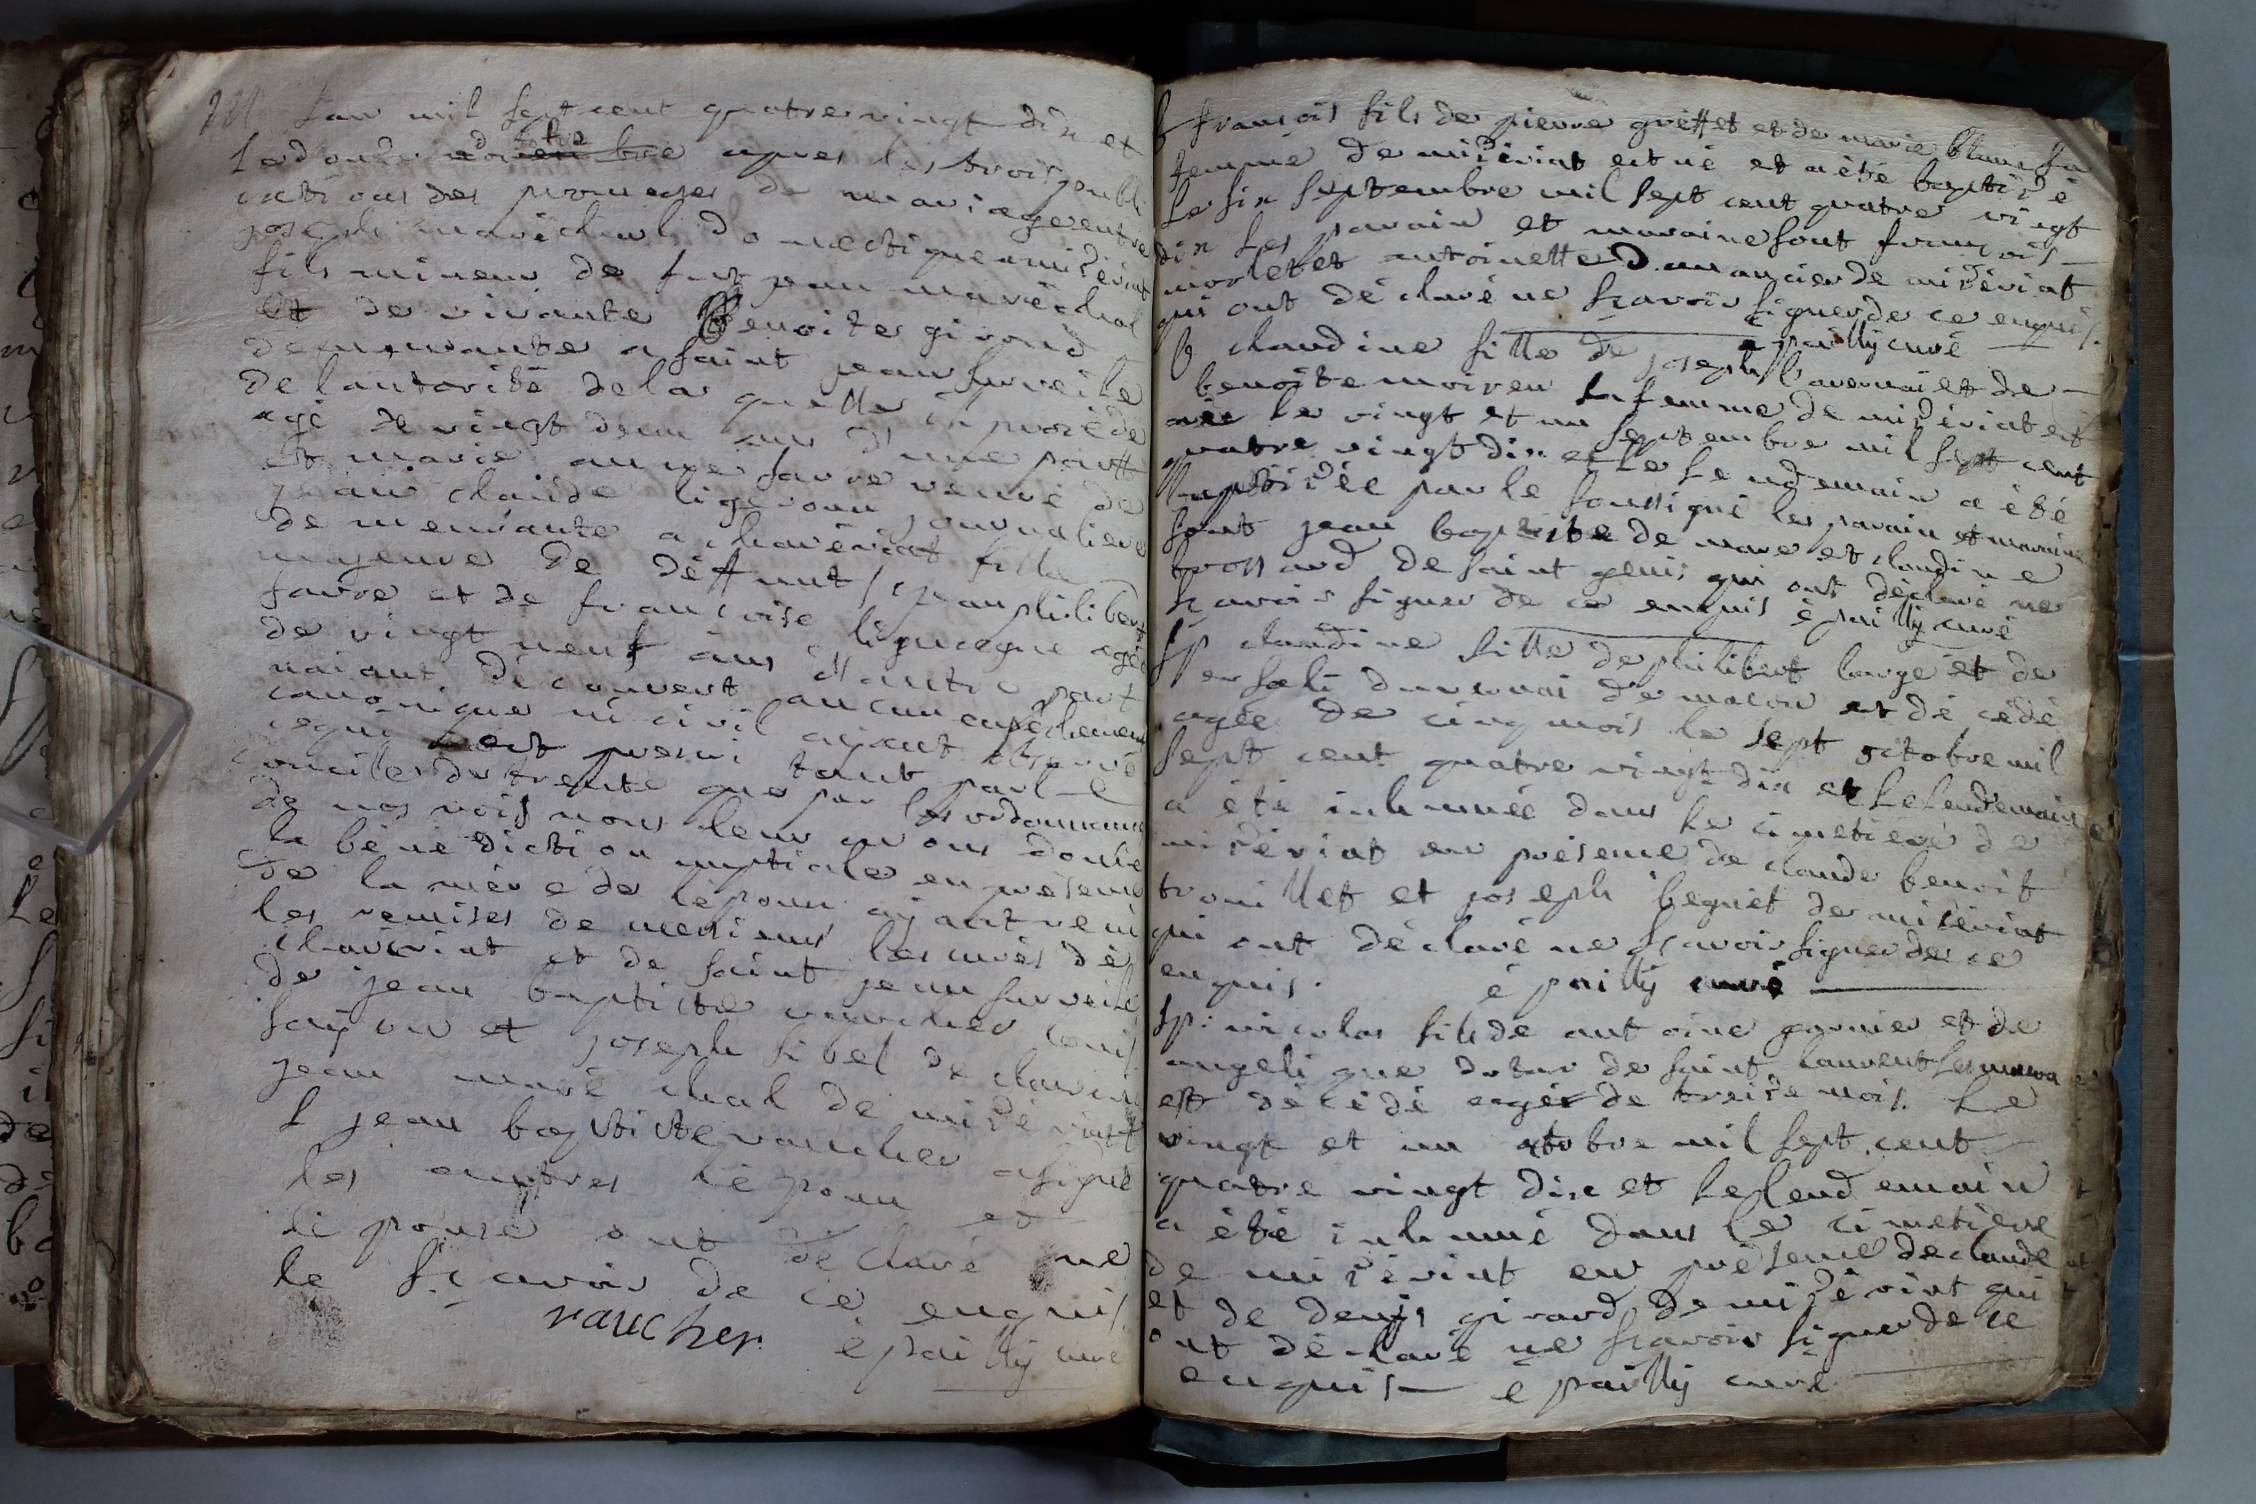 M Lan mil sept cent quatre vingt dix et
le douze octobre apres les trois publi
cations des promesses de mariage entre
joseph maréchal domectique a mizériat
fils mineur de fut jean maréchal
et de vivante Benoite giroud
demeurante a saint jean sur veile
de lautorité de la quelle il procéde
agé de vingt deux ans d'une part
et marie anne favre veuve de
jean claude ligeron journaliere
demeurante a chavériat fille
majeure de déffunt jean philibert
favre et de francoise agée
de vingt neuf ans d'autre part
naiant décauvert aucun empêchement
canonique ni civil ayant observé
ce qui est prescri tant par le
concile de trente que par les ordonnances
de nos rois nous leur avons donné
la bénédiction nuptiale en présence
de la mère de lépoux ayant reçu
les remises de messieurs les curés de
chavériat et de saint jean sur veile
de jean baptiste vaucher
et joseph sibel de
jean maréchal de mizériat
jean baptiste vaucher a signé
les autres lépoux et
lépouse ont déclaré ne
le sçavoir de ce enquis.
vaucher épailly curé
B francois fils de pierre grettet et de marie blanc sa
femme de mizériat est né et a été baptizé
le six septembre mil sept cent quatre vingt
dix les parain et maraine sont francois
morlet et antoinette D de mizériat
qui ont déclaré ne sçavoir signer de ce enquis.
épailly curé
B claudine fille de joseph et de
benoite moiren sa femme de mizériat est
née le vingt et un septembre mil sept cent
quatre vingt dix et le lendemain a été
baptizée par le soussigné les parain et maraine
sont jean baptiste de mare et claudine
brossard de saint genis qui ont déclaré ne
sçavoir signer de ce enquis épailly curé
Sp claudine fille de philibert large et de
de macon est décédé
agée de cinq mois le sept octobre mil
sept cent quatre vingt dix et le lendemain
a été inhumée dans le cimetiere de
mizériat en présence de claude benoit
trouillet et joseph beguet de mizériat
qui ont déclaré ne sçavoir signer de ce
enquis. épailly curé
Sp nicolas fils de antoine garnier et de
angelique dutar de saint laurent les macon
est décédé agé de treize mois le
vingt et un octobre mil sept cent
quatre vingt dix et le lendemain
a été inhumé dans le cimetiere
de mizériat en présence de claude
et de denis girard de mizériat qui
ont déclaré ne sçavoir signer de ce
enquis épailly curé